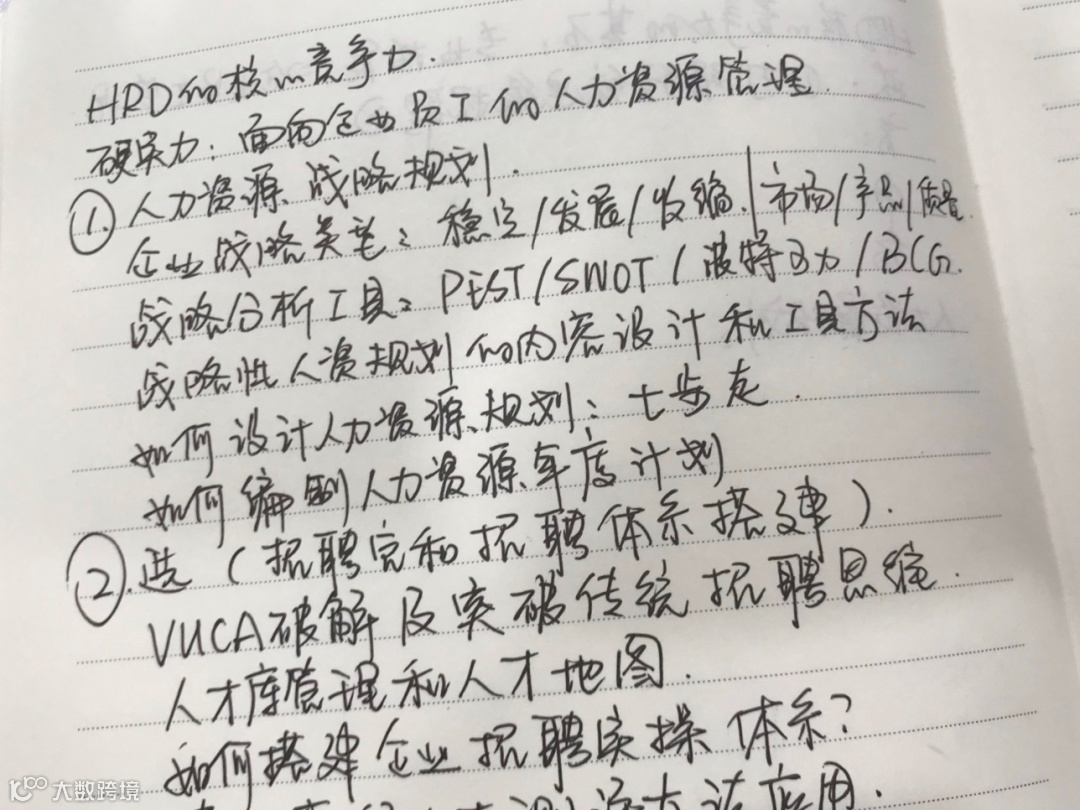 HRD的核心竞争力.
硬实力：面向企业员工的人力资源管理
①.人力资源战略规划.
企业战略类型：稳定/发展/收缩/市场/产品/质量
战略分析工具：PEST/SWOT/波特五力/BCG.
战略性人资规划的内容设计和工具方法
如何设计人力资源规划：七步走.
如何编制人力资源年度计划
②.选（招聘官和招聘体系搭建）.
VUCA破解及突破传统招聘思维.
人才库管理和人才地图.
如何搭建企业招聘实操体系？
测评方法应用.
大数跨境